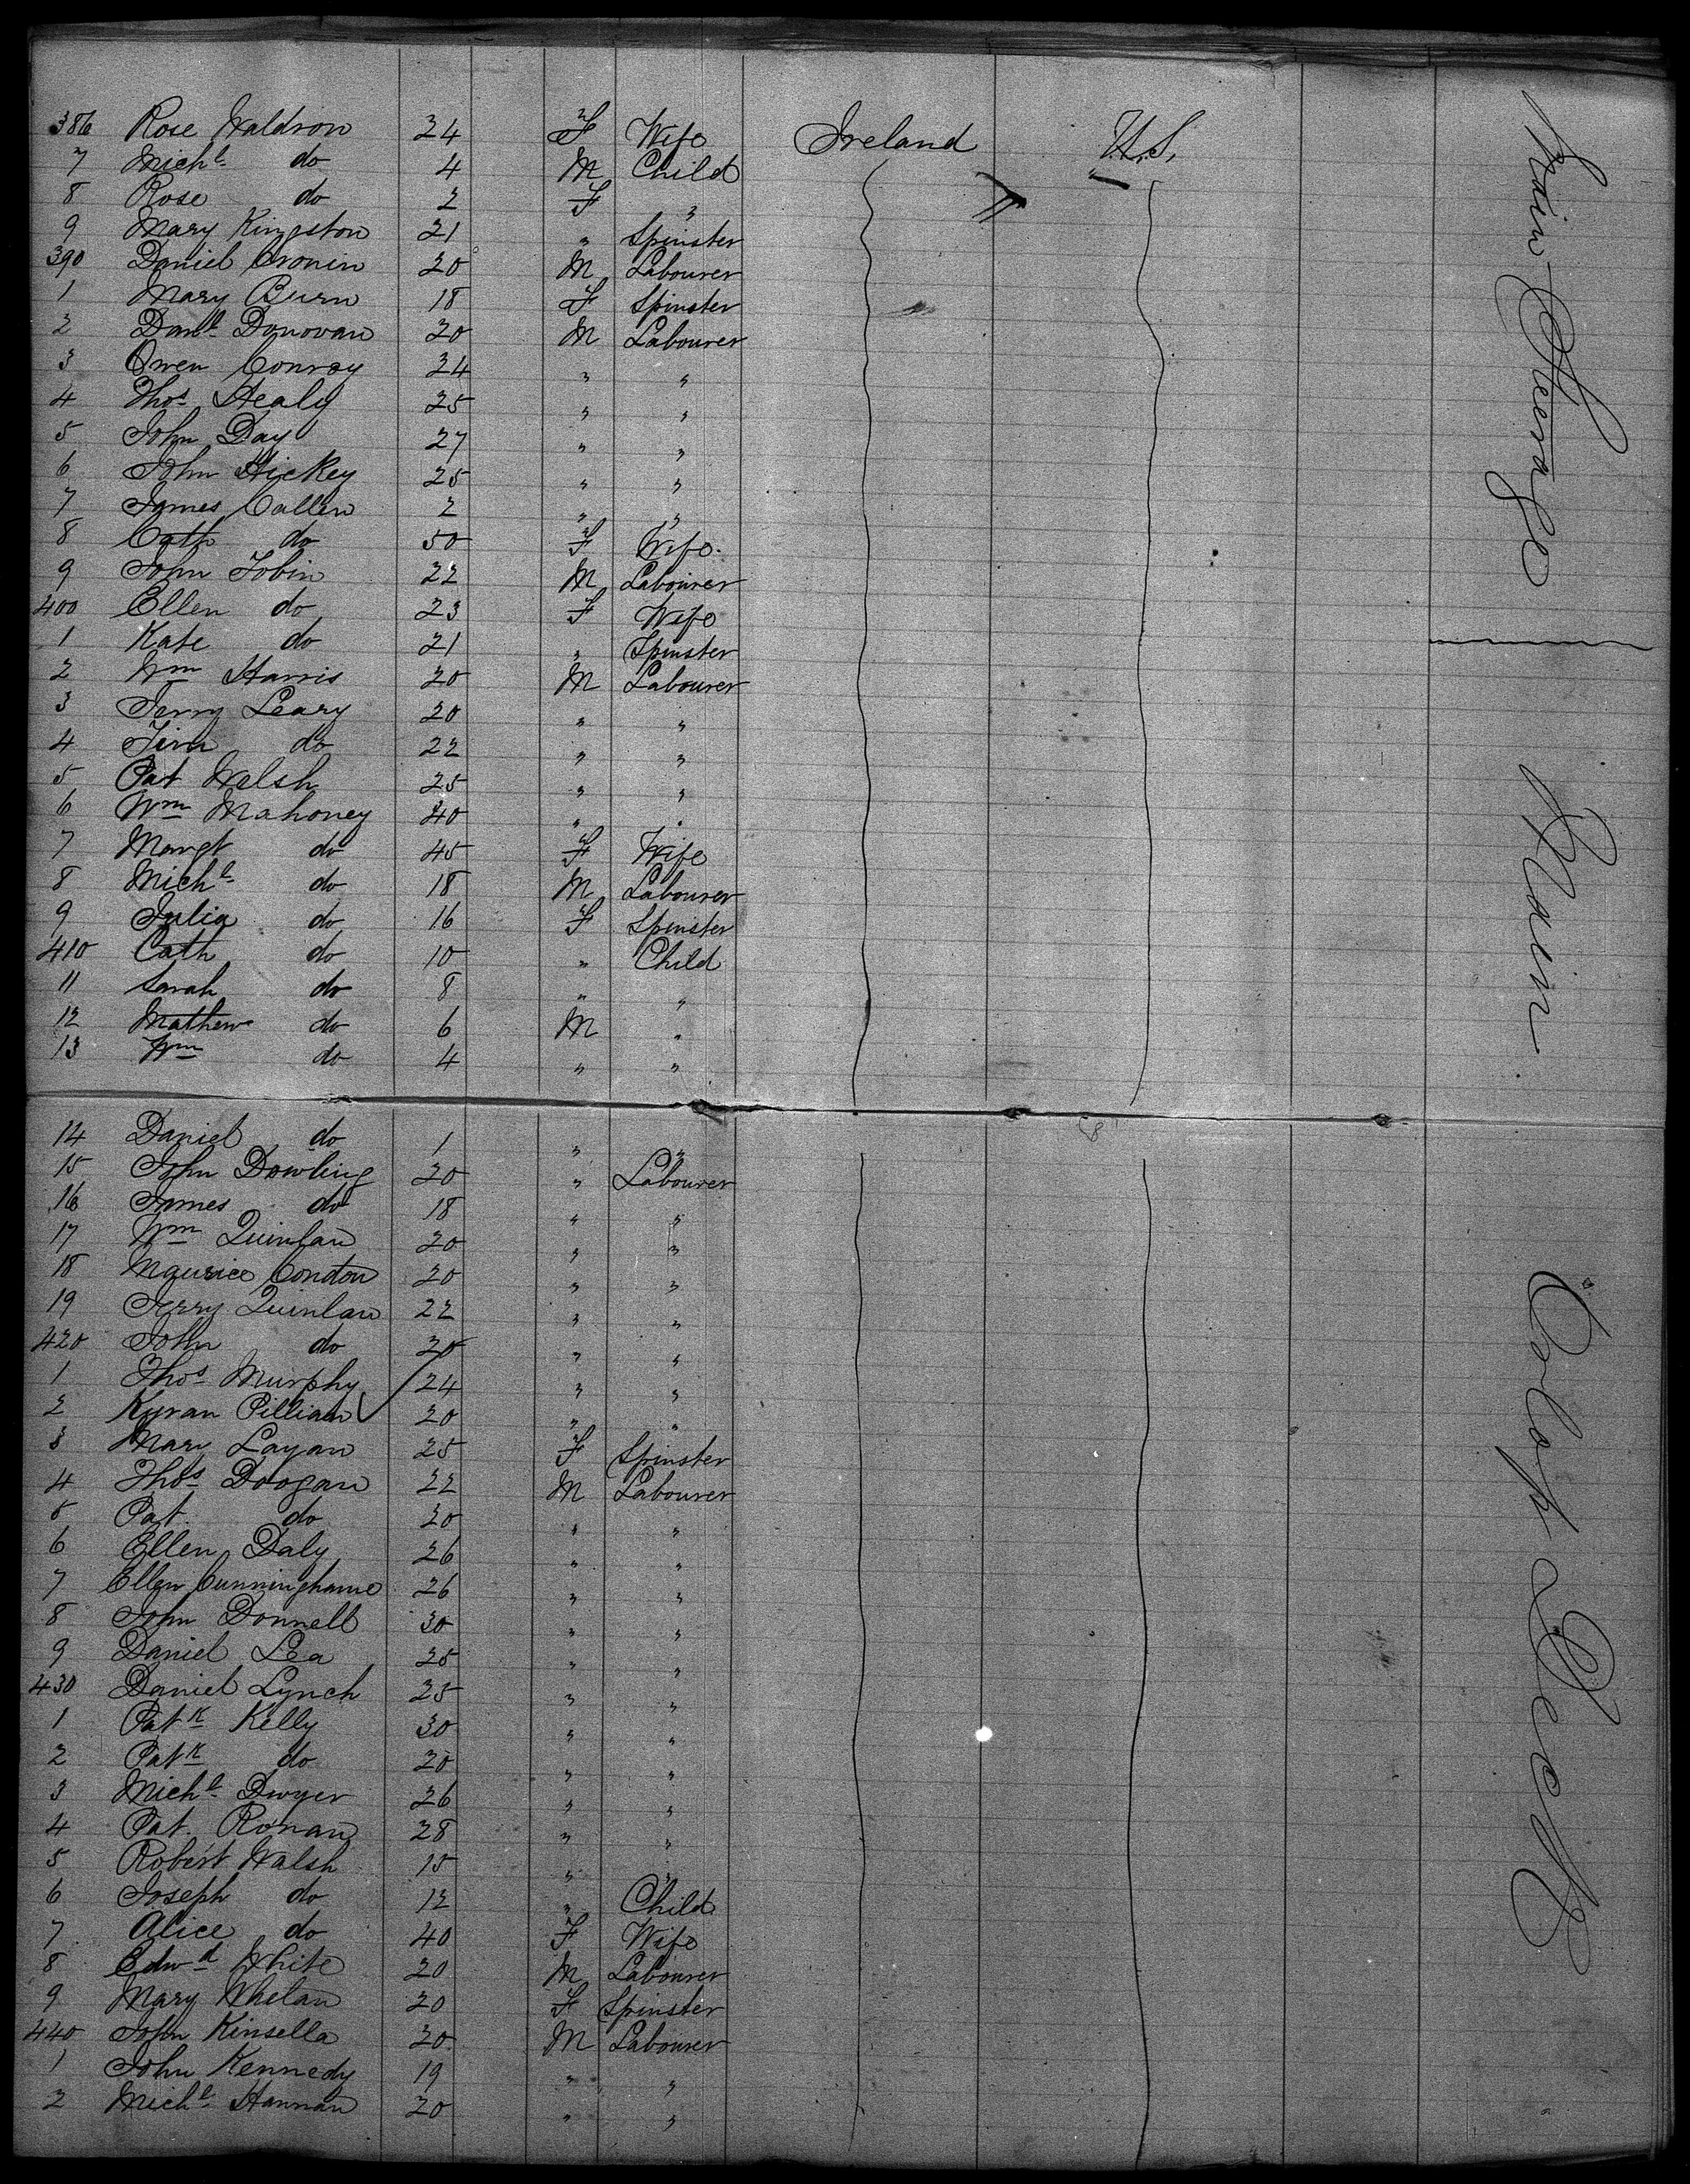 386 Rose Waldron 24 F Wife Ireland U.S.
7 Michl do 4 M Child
8 Rose do 2 F "
9 Mary Kingston 21 " Spinster
390 Daniel Cronin 20 M Labourer
1 Mary Burn 18 F Spinster
2 Danl Donovan 20 M Labourer
3 Owen Conroy 24 " "
4 Thos Healy 25 " "
5 John Day 27 " "
6 John Hickey 25 " "
7 James Callen 2 " "
8 Cath do 50 F Wife
9 John Tobin 22 M Labourer
400 Ellen do 23 F Wife
1 Kate do 21 " Spinster
2 Wm Harris 20 M Labourer
3 Jerry Leary 20 " "
4 Tim do 22 " "
5 Pat Walsh 25 " "
6 Wm Mahoney 40 " "
7 Margt do 45 F Wife
8 Michl do 18 M Labourer
9 Julia do 16 F Spinster
410 Cath do 10 " Child
11 Sarah do 8 " "
12 Mathew do 6 M "
13 Wm do 4 " "
14 Daniel do 1 " "
15 John Dowling 20 " Labourer
16 James do 18 " "
17 Wm Quinlan 20 " "
18 Maurice Condon 20 " "
19 Jerry Quinlan 22 " "
420 John do 20 " "
1 Thos Murphy 24 " "
2 Kyran Pillian 20 " "
3 Mary Layan 25 F Spinster
4 Thos Doogan 22 M Labourer
5 Pat do 20 " "
6 Ellen Daly 26 " "
7 Ellen Cunninghame 26 " "
8 John Donnell 30 " "
9 Daniel Lea 25 " "
430 Daniel Lynch 25 " "
1 Patk Kelly 30 " "
2 Patk do 20 " "
3 Michl Dwyer 26 " "
4 Pat. Ronan 28 " "
5 Robert Walsh 15 " "
6 Joseph do 12 " Child
7 Alice do 40 F Wife
8 Edwd White 20 M Labourer
9 Mary Whelan 20 F Spinster
440 John Kinsella 20 M Labourer
1 John Kennedy 19 " "
2 Michl Hannan 20 " "
Main Steerage
Main
Deck